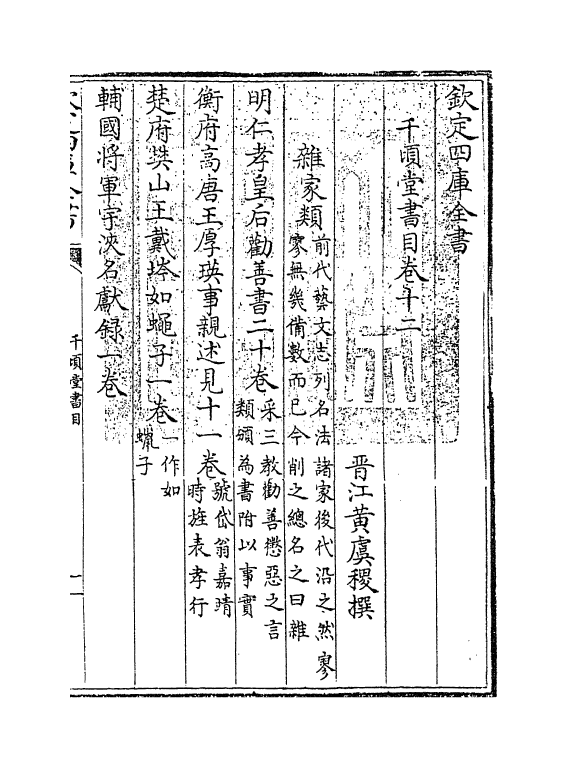 欽定四庫全書
千頃堂書目卷十二
晋江黄虞稷撰
雜家類前代藝文志列名法諸家後代沿之然寥
寥無幾備數而已今削之總名之曰雜
明仁孝皇后勸善書二十卷采三教勸善懲惡之言
類頒為書附以事實
衡府高唐王厚煐事親述見十一卷號岱翁嘉靖
時旌表孝行
楚府樊山王載坽如蠅子一卷一作如
蠟子
輔國將軍宇浹名獻録一卷
千頃堂書目
一